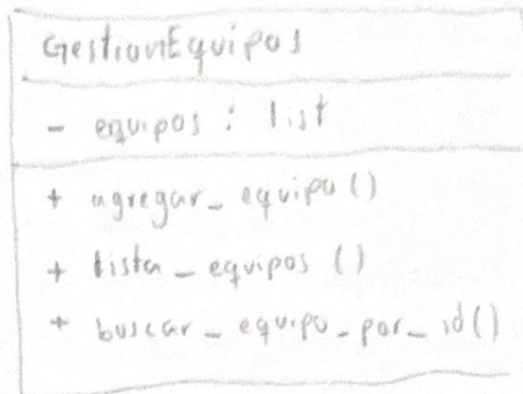 GestionEquipos
- equipos : list
+ agregar_equipo()
+ lista_equipos ()
+ buscar_equipo_por_id()